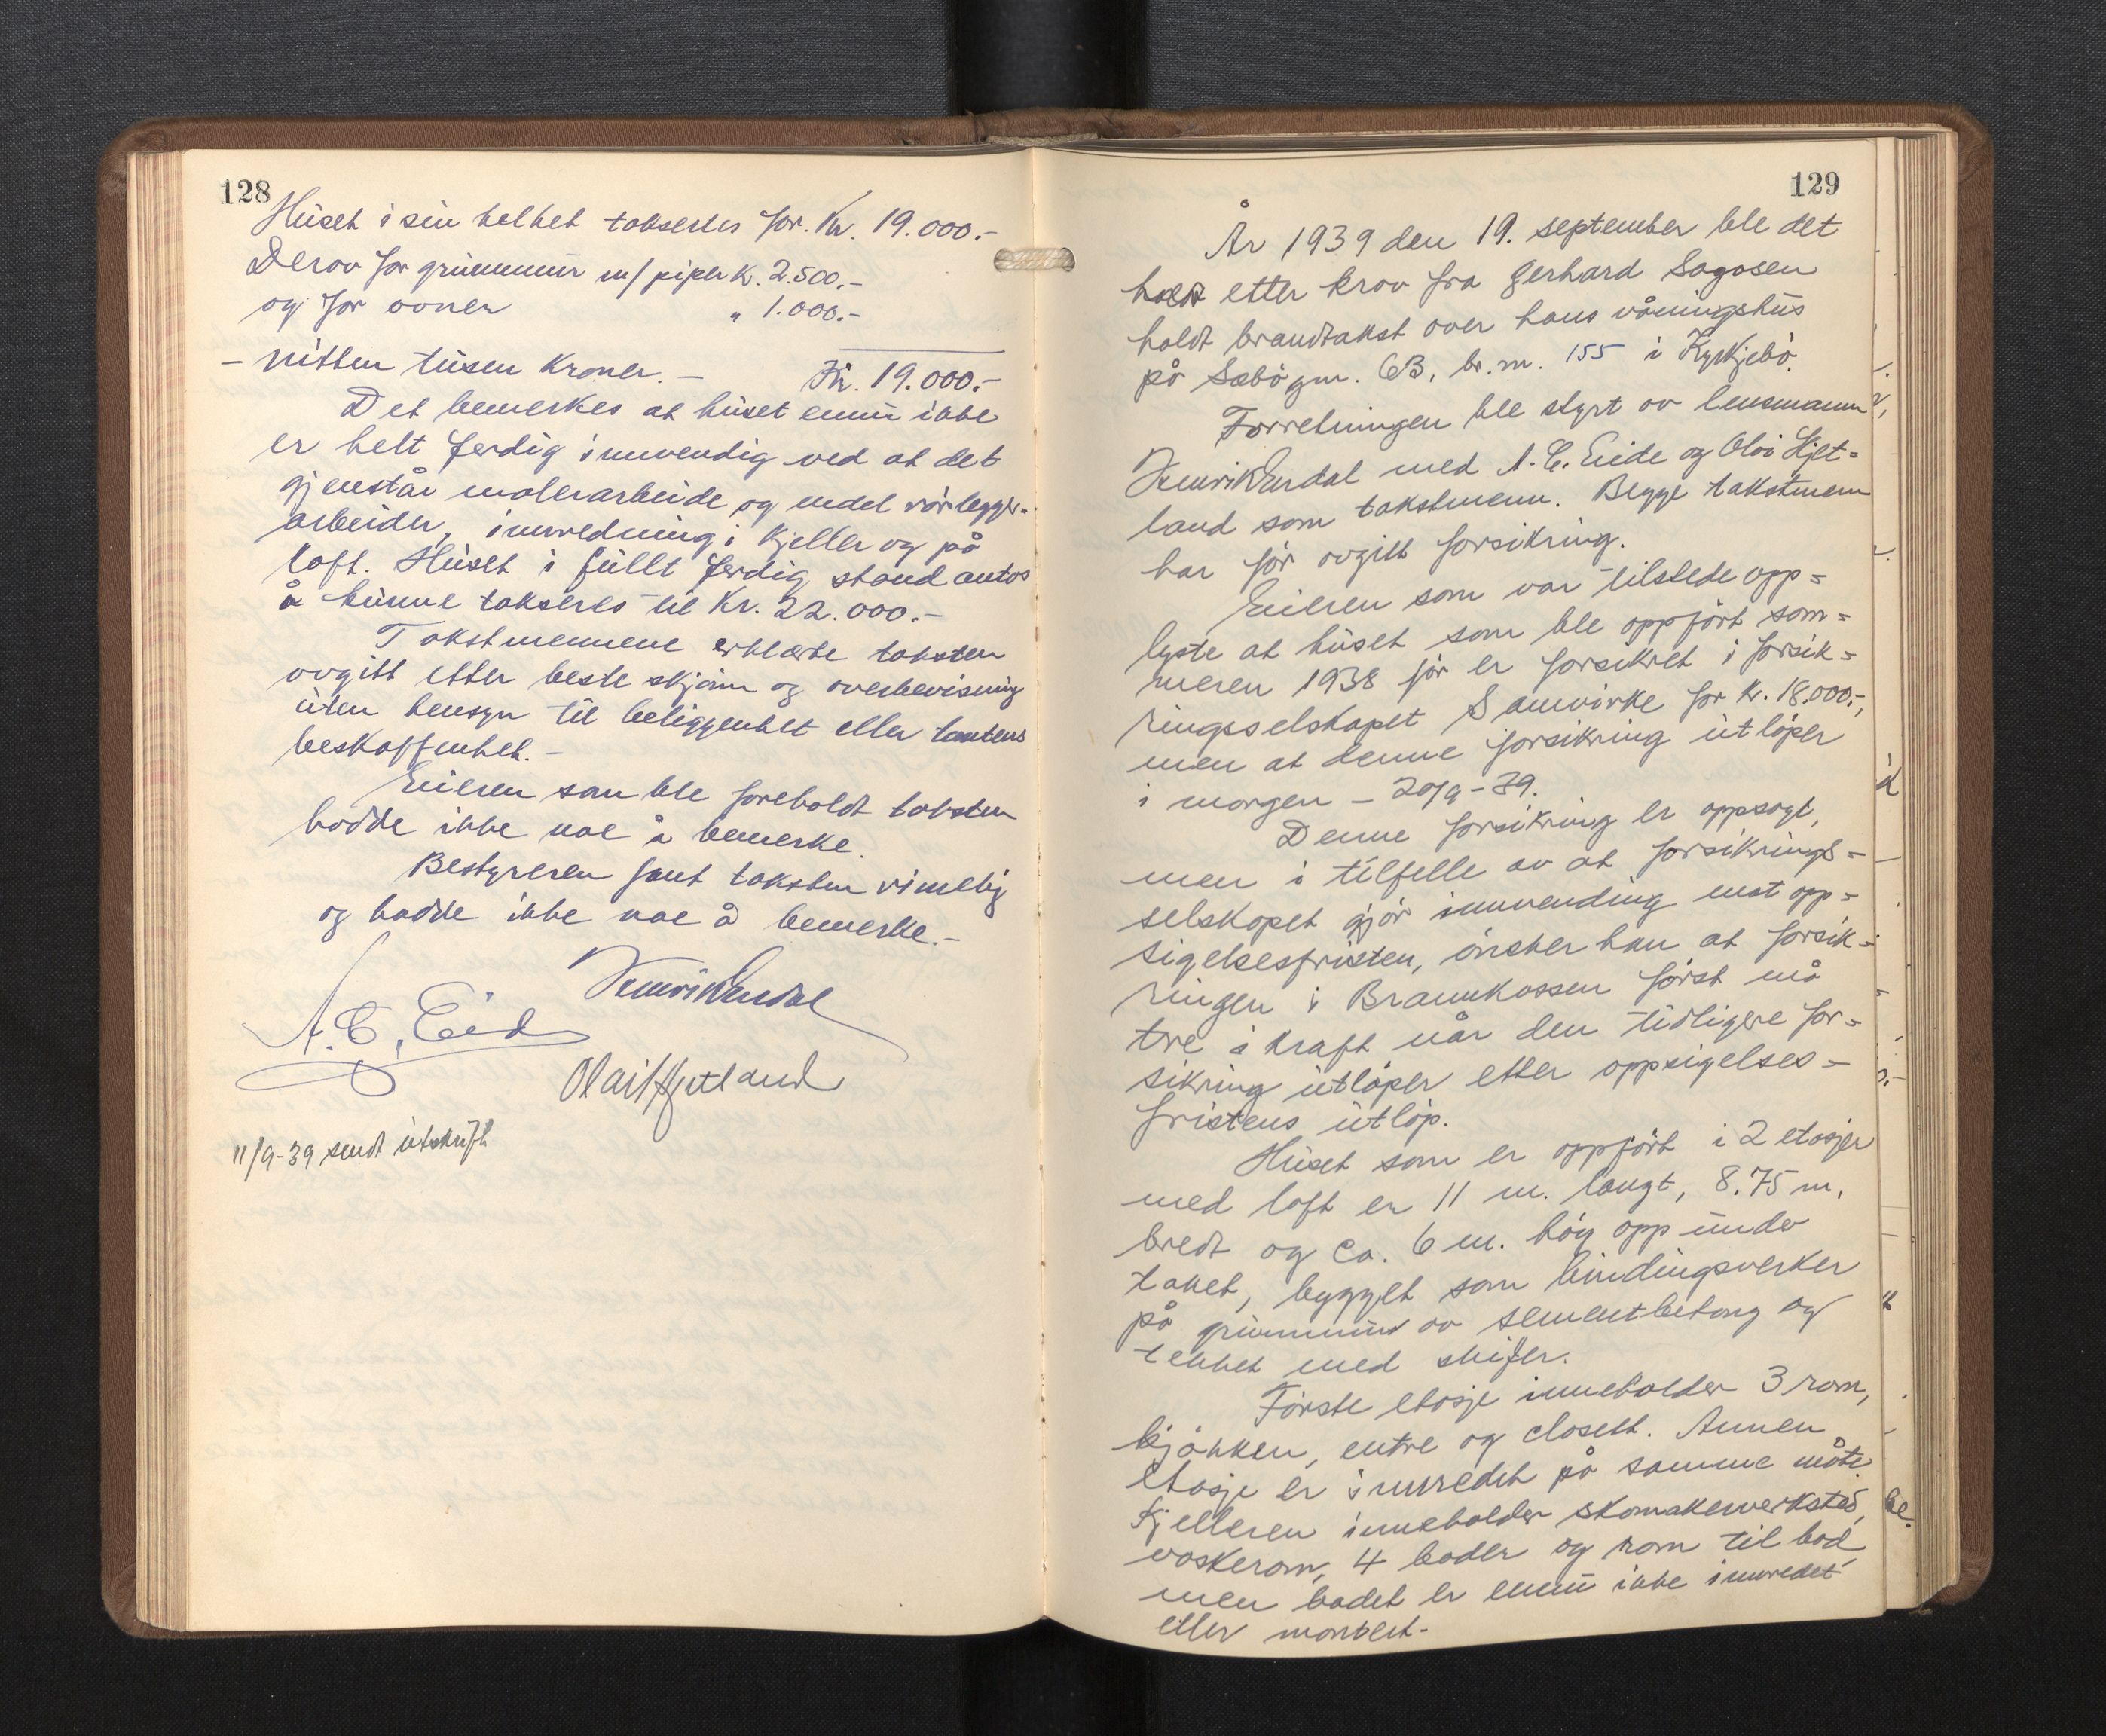 128
Huset i sin helhet takseres for Kr. 19.000.-
Derav for grunnmur m/piper K. 2.500.-
og for ovner " 1.000.-
- nitten tusen kroner. - Kr. 19.000.-
Det bemerkes at huset ennu ikke
er helt ferdig innvendig ved at det
gjenstår malerarbeide og endel rörlegger-
arbeider, innredning i kjeller og på
loft. Huset i fullt ferdig stand antas
å kunne takseres til Kr. 22.000.-
Takstmennene erklærte taksten
avgitt etter beste skjönn og overbevisning
uten hensyn til beliggenhet eller tomtens
beskaffenhet.-
Eieren som ble foreholdt taksten
hadde ikke noe å bemerke.
Bestyreren fant taksten rimelig
og hadde ikke noe å bemerke.-
Henrik Endal
A. C. Eide
Olai Hjetland
11/9-39 sendt utskrift
129
År 1939 den 19. september ble det
etter krav fra Gerhard Sagosen
holdt branntakst over hans våningshus
på Sæbö gnr. 63, br.nr. 155 i Kyrkjebö.
Forretningen ble styrt av lensmann
Henrik Endal med A. C. Eide og Olai Hjet=
land som takstmenn. Begge takstmenn
har för avgitt forsikring.
Eieren som var tilstede opp=
lyste at huset som ble oppfört som=
meren 1938 för er forsikret i forsik=
ringsselskapet Samvirke for Kr. 18.000.-,
men at denne forsikring utlöper
i morgen - 20/9-39.
Denne forsikring er oppsagt,
men i tilfelle av at forsikrings=
selskapet gjör innvending mot opp=
sigelsesfristen, önsker han at forsik=
ringen i Brannkassen först må
tre i kraft når den tidligere for=
sikring utlöper etter oppsigelses=
fristens utlöp.
Huset som er oppfört i 2 etasjer
med loft er 11 m. langt, 8.75 m.
bredt og ca. 6 m. höy opp under
taket, bygget som bindingsverker
på grunnmur av sementbetong og
tekket med skifer.
Förste etasje inneholder 3 rom,
kjökken, entre og closett. Annen
etasje er innredet på samme måte.
Kjelleren inneholder skomakerverksted,
vaskerom, 4 boder og rom til bad,
men badet er ennu ikke innredet
eller montert-